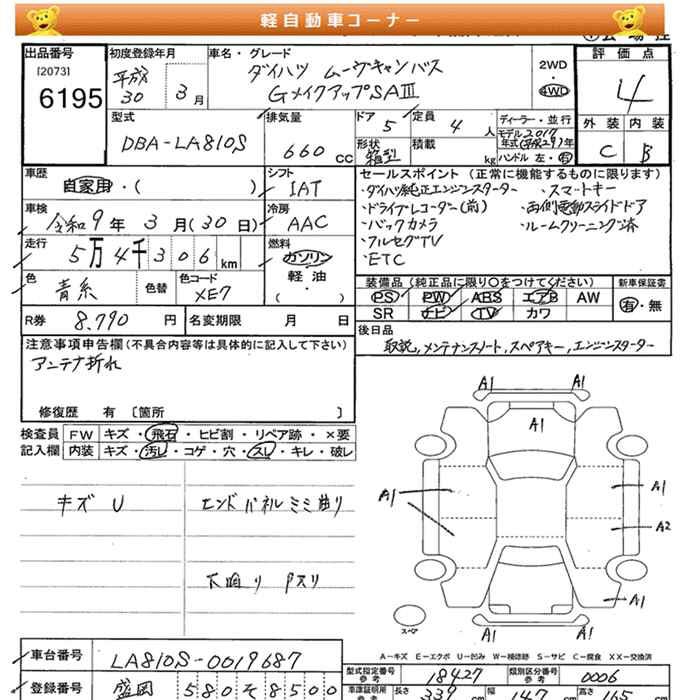 軽自動車コーナー
出品番号 初度登録年月 車名・グレード 評価点
[2073] 平成 ダイハツ ムーヴキャンバス 2WD
6195 30 3月 GメイクアップSAⅢ ・4WD 4
型式 排気量 ドア 5 定員 4人 ディーラー・並行 外装 内装
DBA-LA810S 660cc 形状 箱型 積載 kg モデル2017 年式(平成29)年 C B
ハンドル 左・右
車歴 シフト セールスポイント(正常に機能するものに限ります)
自家用・( ) IAT ・ダイハツ純正エンジンスターター ・スマートキー
車検 冷房 ・ドライブレコーダー(前) ・両側電動スライドドア
令和9年3月(30日) AAC ・バックカメラ ・ルームクリーニング済
走行 燃料 ・フルセグTV
5万4千306km ガソリン・軽油・( ) ・ETC
色 色替 色コード 装備品(純正品に限り○をつけてください) 新車保証書
青系 XE7 PS PW ABS エアB AW 有・無
SR ナビ TV カワ
R券 8.790円 名変期限 月 日 後日品
取説,メンテナンスノート,スペアキー,エンジンスターター
注意事項申告欄(不具合内容等は具体的に記入して下さい)
アンテナ折れ
修復歴 有 〔箇所 〕
検査員 FW キズ・飛石・ヒビ割・リペア跡・×要
記入欄 内装 キズ・汚レ・コゲ・穴・スレ・キレ・破レ
キズ U エンドパネルミミ曲り
下廻り
A1 A1
A1
A1 A1
A2
A1
A1 A1
スペア
A-キズ E-エクボ U-凹み W-補修跡 S-サビ C-腐食 XX-交換済
車台番号 LA810S-0019687 型式指定番号 参考 18427 類別区分番号 参考 0006
登録番号 盛岡 580 そ 8500 車庫証明用 参考 長さ 339 cm 幅 147 高さ 165